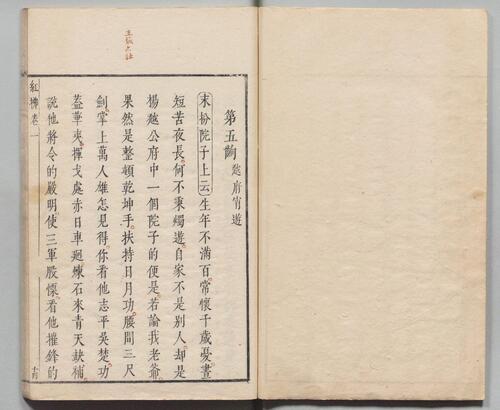 第五齣 越府宵遊
末扮院子上云生年不滿百常懷千歲憂晝
短苦夜長何不秉燭遊自家不是别人却是
楊越公府中一個院子的便是若論我老爺
果然是整頓乾坤手扶持日月功腰間三尺
劍掌上萬人雄怎見得你看他志平吳楚功
蓋華夷揮戈處赤日車廻煉石來青天缺補
說他將令的嚴明使三軍股慄看他摧鋒的
紅拂卷一